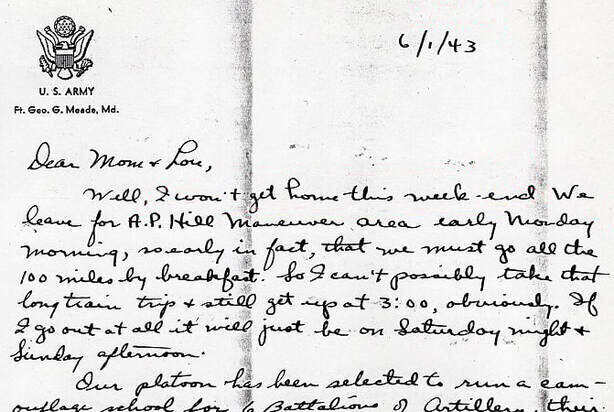 6/1/43
U. S. ARMY
Ft. Geo. G. Meade, Md.
Dear Mom & Lou,
Well, I won't get home this week-end We
leave for A.P. Hill Maneuver area early Monday
morning, so early in fact, that we must go all the
100 miles by breakfast. So I can't possibly take that
long train trip & still get up at 3:00, obviously. If
I go out at all it will just be on Saturday night &
Sunday afternoon.
Our platoon has been selected to run a cam-
ouflage school for 6 Battalions of Artillery, their